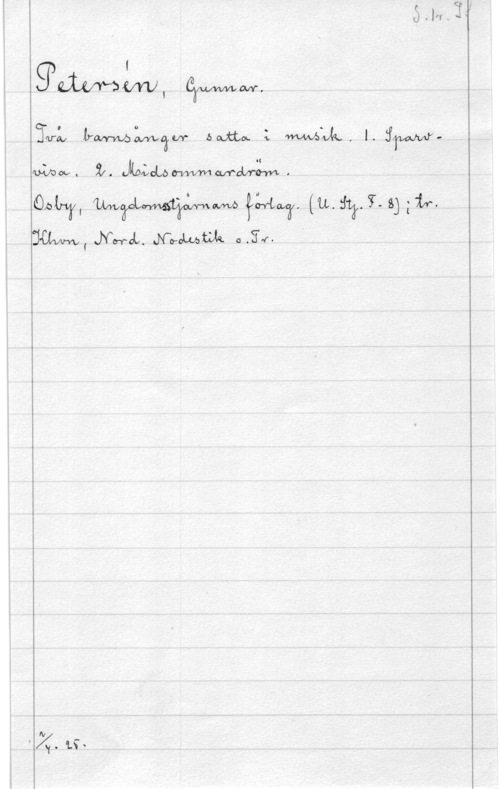 S. tr. Pf
Petersén, Gunnar.
Två barnsånger satta i musik. 1. Sparv-
visa. 2. Midsommardröm.
Osby, Ungdomsstjärnans förlag. (U. Stj. F. 8); tr.
Khvn, Nord. Nodestik o. Tr.
25.